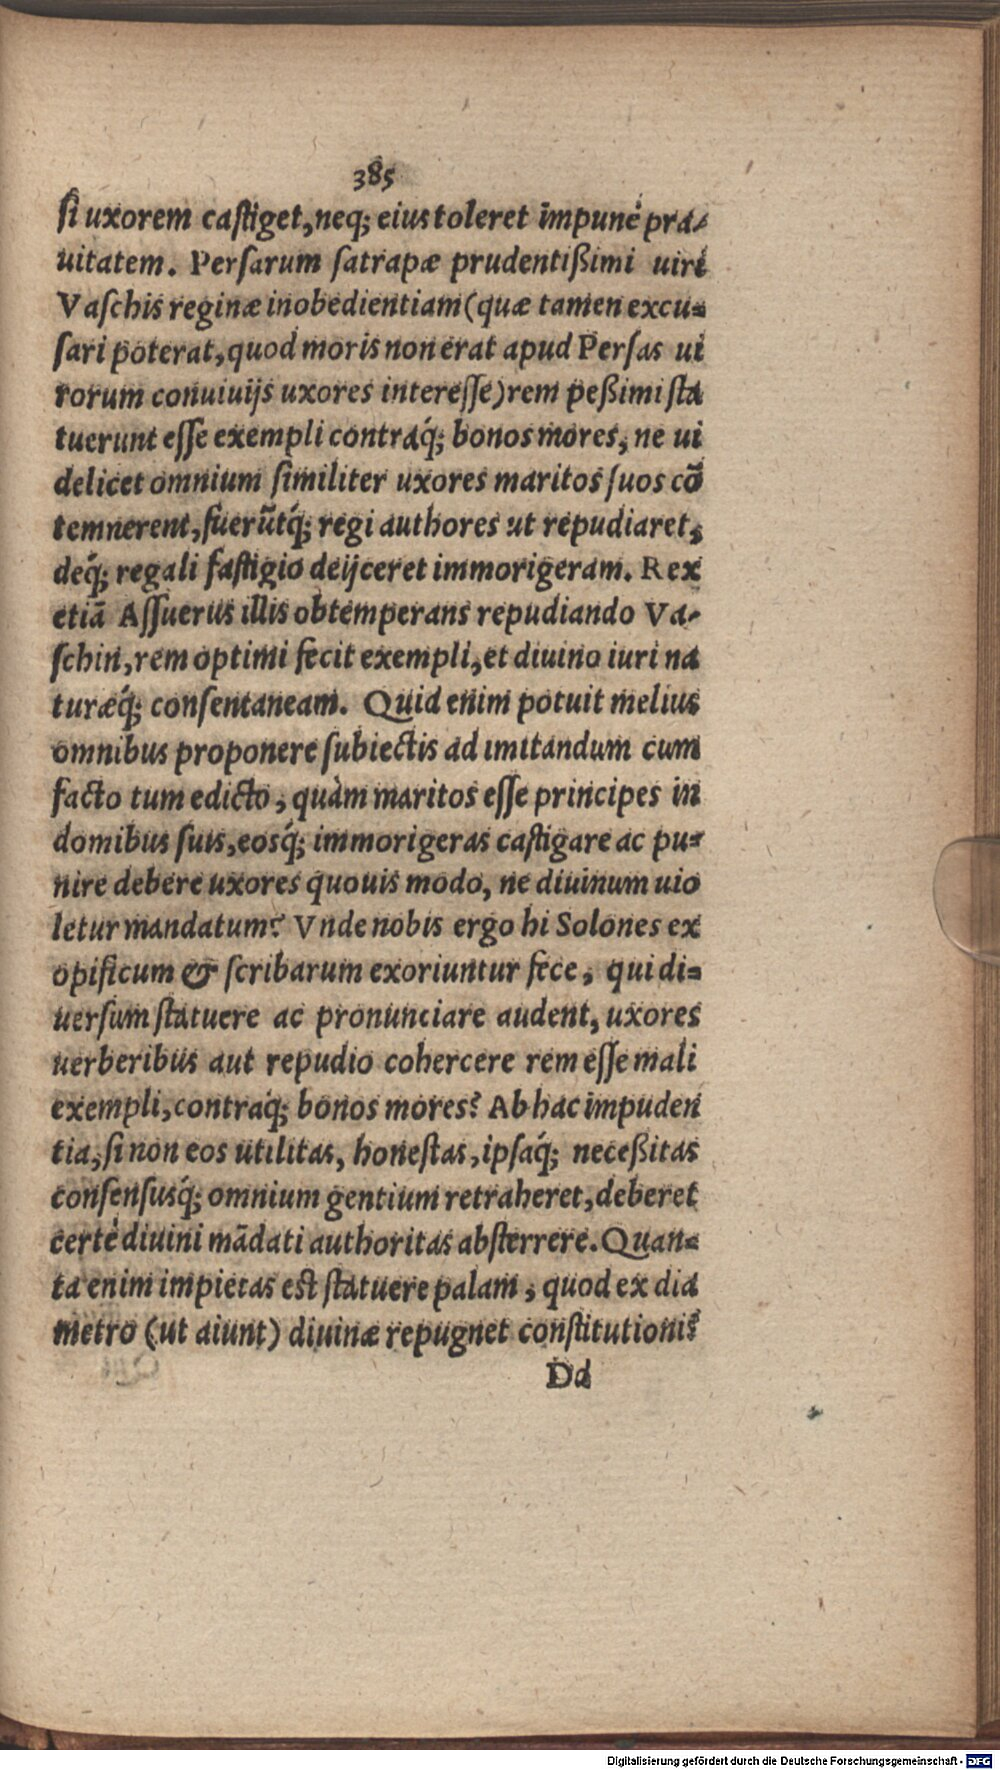 385
ſi uxorem caſtiget, neq; eius toleret impunè pra-
uitatem. Perſarum ſatrapæ prudentißimi uiri
Vaſchis reginæ inobedientiam (quæ tamen excu-
ſari poterat, quod moris non erat apud Perſas ui
rorum conuiuijs uxores intereſſe) rem peßimi ſta
tuerunt eſſe exempli contraq́; bonos mores, ne ui
delicet omnium ſimiliter uxores maritos ſuos cō
temnerent, fuerūtq́; regi authores ut repudiaret,
deq́; regali faſtigio deijceret immorigeram. Rex
etiā Aſſuerus illis obtemperans repudiando Va-
ſchin, rem optimi fecit exempli, et diuino iuri na
turæq́; conſentaneam. Quid enim potuit melius
omnibus proponere ſubiectis ad imitandum cum
facto tum edicto, quàm maritos eſſe principes in
domibus ſuis, eosq́; immorigeras caſtigare ac pu-
nire debere uxores quouis modo, ne diuinum uio
letur mandatum? Vnde nobis ergo hi Solones ex
opificum & ſcribarum exoriuntur fece, qui di-
uerſum ſtatuere ac pronunciare audent, uxores
uerberibus aut repudio cohercere rem eſſe mali
exempli, contraq́; bonos mores? Ab hac impuden
tia, ſi non eos utilitas, honeſtas, ipſaq́; neceßitas
conſenſusq́; omnium gentium retraheret, deberet
certè diuini mādati authoritas abſterrere. Quan-
ta enim impietas eſt ſtatuere palam, quod ex dia
metro (ut aiunt) diuinæ repugnet conſtitutioni?
Dd
Digitalisierung gefördert durch die Deutsche Forschungsgemeinschaft - DFG